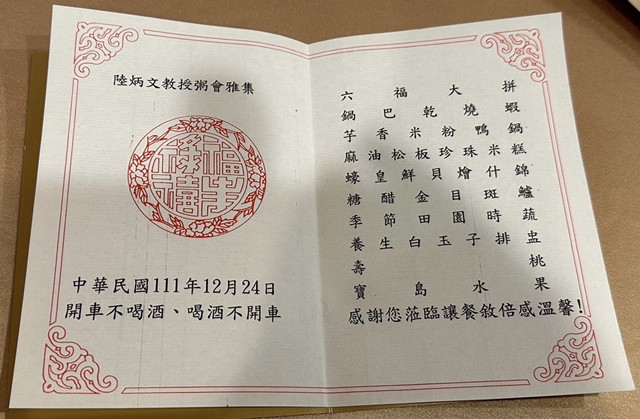 陸炳文教授粥會雅集
中華民國111年12月24日
開車不喝酒、喝酒不開車
六福大拼
鍋巴乾燒蝦
芋香米粉鴨鍋
麻油松板珍珠米糕
蠔皇鮮貝燴什錦
糖醋金目斑鱸
季節田園時蔬
養生白玉子排盅
壽桃
寶島水果
感謝您蒞臨讓餐敘倍感溫馨!